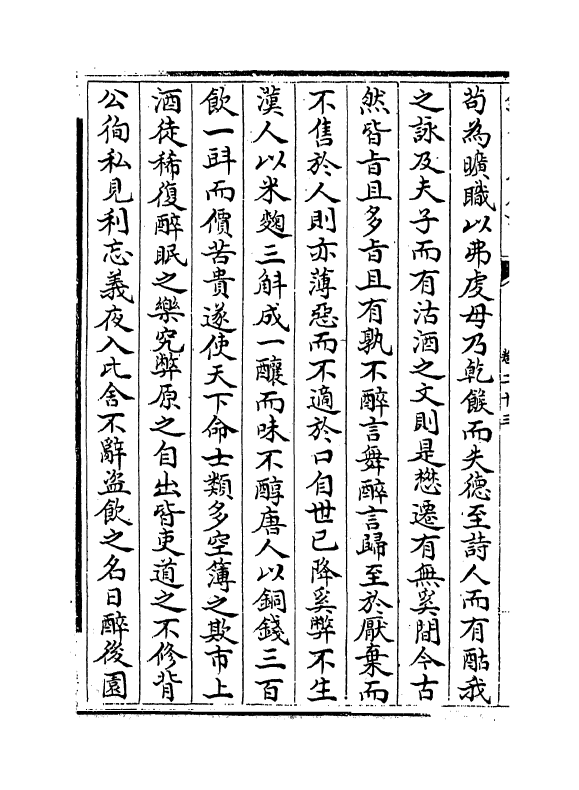 卷二十三
茍為曠職以弗虔毋乃乾餱而失德至詩人而有酤我
之詠及夫子而有沽酒之文則是懋遷有無奚間今古
然皆㫖且多㫖且有孰不醉言舞醉言歸至於厭棄而
不售於人則亦薄惡而不適於口自世已降奚弊不生
漢人以米麴三斛成一釀而味不醇唐人以銅錢三百
飲一㪷而價苦貴遂使天下命士類多空簿之欺市上
酒徒稀復醉眠之樂究弊原之自出皆吏道之不修背
公徇私見利忘義夜入比舍不辭盜飲之名日醉後園